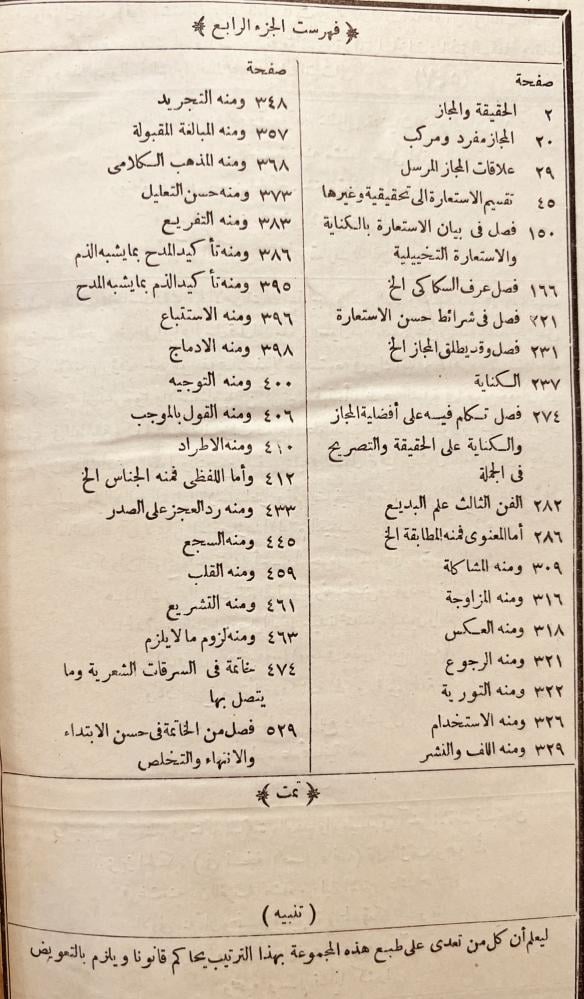 ﴿ فهرست الجزء الرابع ﴾
صفحة
٢ الحقيقة والمجاز
٢٠ المجاز مفرد ومركب
٢٩ علاقات المجاز المرسل
٤٥ تقسيم الاستعارة الى تحقيقية وغيرها
١٥٠ فصل فى بيان الاستعارة بالكناية
والاستعارة التخييلية
١٦٦ فصل عرف السكاكى الخ
٢٢١ فصل فى شرائط حسن الاستعارة
٢٣١ فصل وقد يطلق المجاز الخ
٢٣٧ الكناية
٢٧٤ فصل تكلم فيه على أفضلية المجاز
والكناية على الحقيقة والتصريح
فى الجملة
٢٨٢ الفن الثالث علم البديع
٢٨٦ أما المعنوى فمنه المطابقة الخ
٣٠٩ ومنه المشاكلة
٣١٦ ومنه المزاوجة
٣١٨ ومنه العكس
٣٢١ ومنه الرجوع
٣٢٢ ومنه التورية
٣٢٦ ومنه الاستخدام
٣٢٩ ومنه اللف والنشر
صفحة
٣٤٨ ومنه التجريد
٣٥٧ ومنه المبالغة المقبولة
٣٦٨ ومنه المذهب الكلامى
٣٧٣ ومنه حسن التعليل
٣٨٣ ومنه التفريع
٣٨٦ ومنه تأكيد المدح بما يشبه الذم
٣٩٥ ومنه تأكيد الذم بما يشبه المدح
٣٩٦ ومنه الاستتباع
٣٩٨ ومنه الادماج
٤٠٠ ومنه التوجيه
٤٠٦ ومنه القول بالموجب
٤١٠ ومنه الاطراد
٤١٢ وأما اللفظى فمنه الجناس الخ
٤٣٣ ومنه رد العجز على الصدر
٤٤٥ ومنه السجع
٤٥٩ ومنه القلب
٤٦١ ومنه التشريع
٤٦٣ ومنه لزوم ما لا يلزم
٤٧٤ خاتمة فى السرقات الشعرية وما
يتصل بها
٥٢٩ فصل من الخاتمة فى حسن الابتداء
والانتهاء والتخلص
﴿ تمت ﴾
( تنبيه )
ليعلم أن كل من تعدى على طبع هذه المجموعة بهذا الترتيب يحاكم قانونا ويلزم بالتعويض